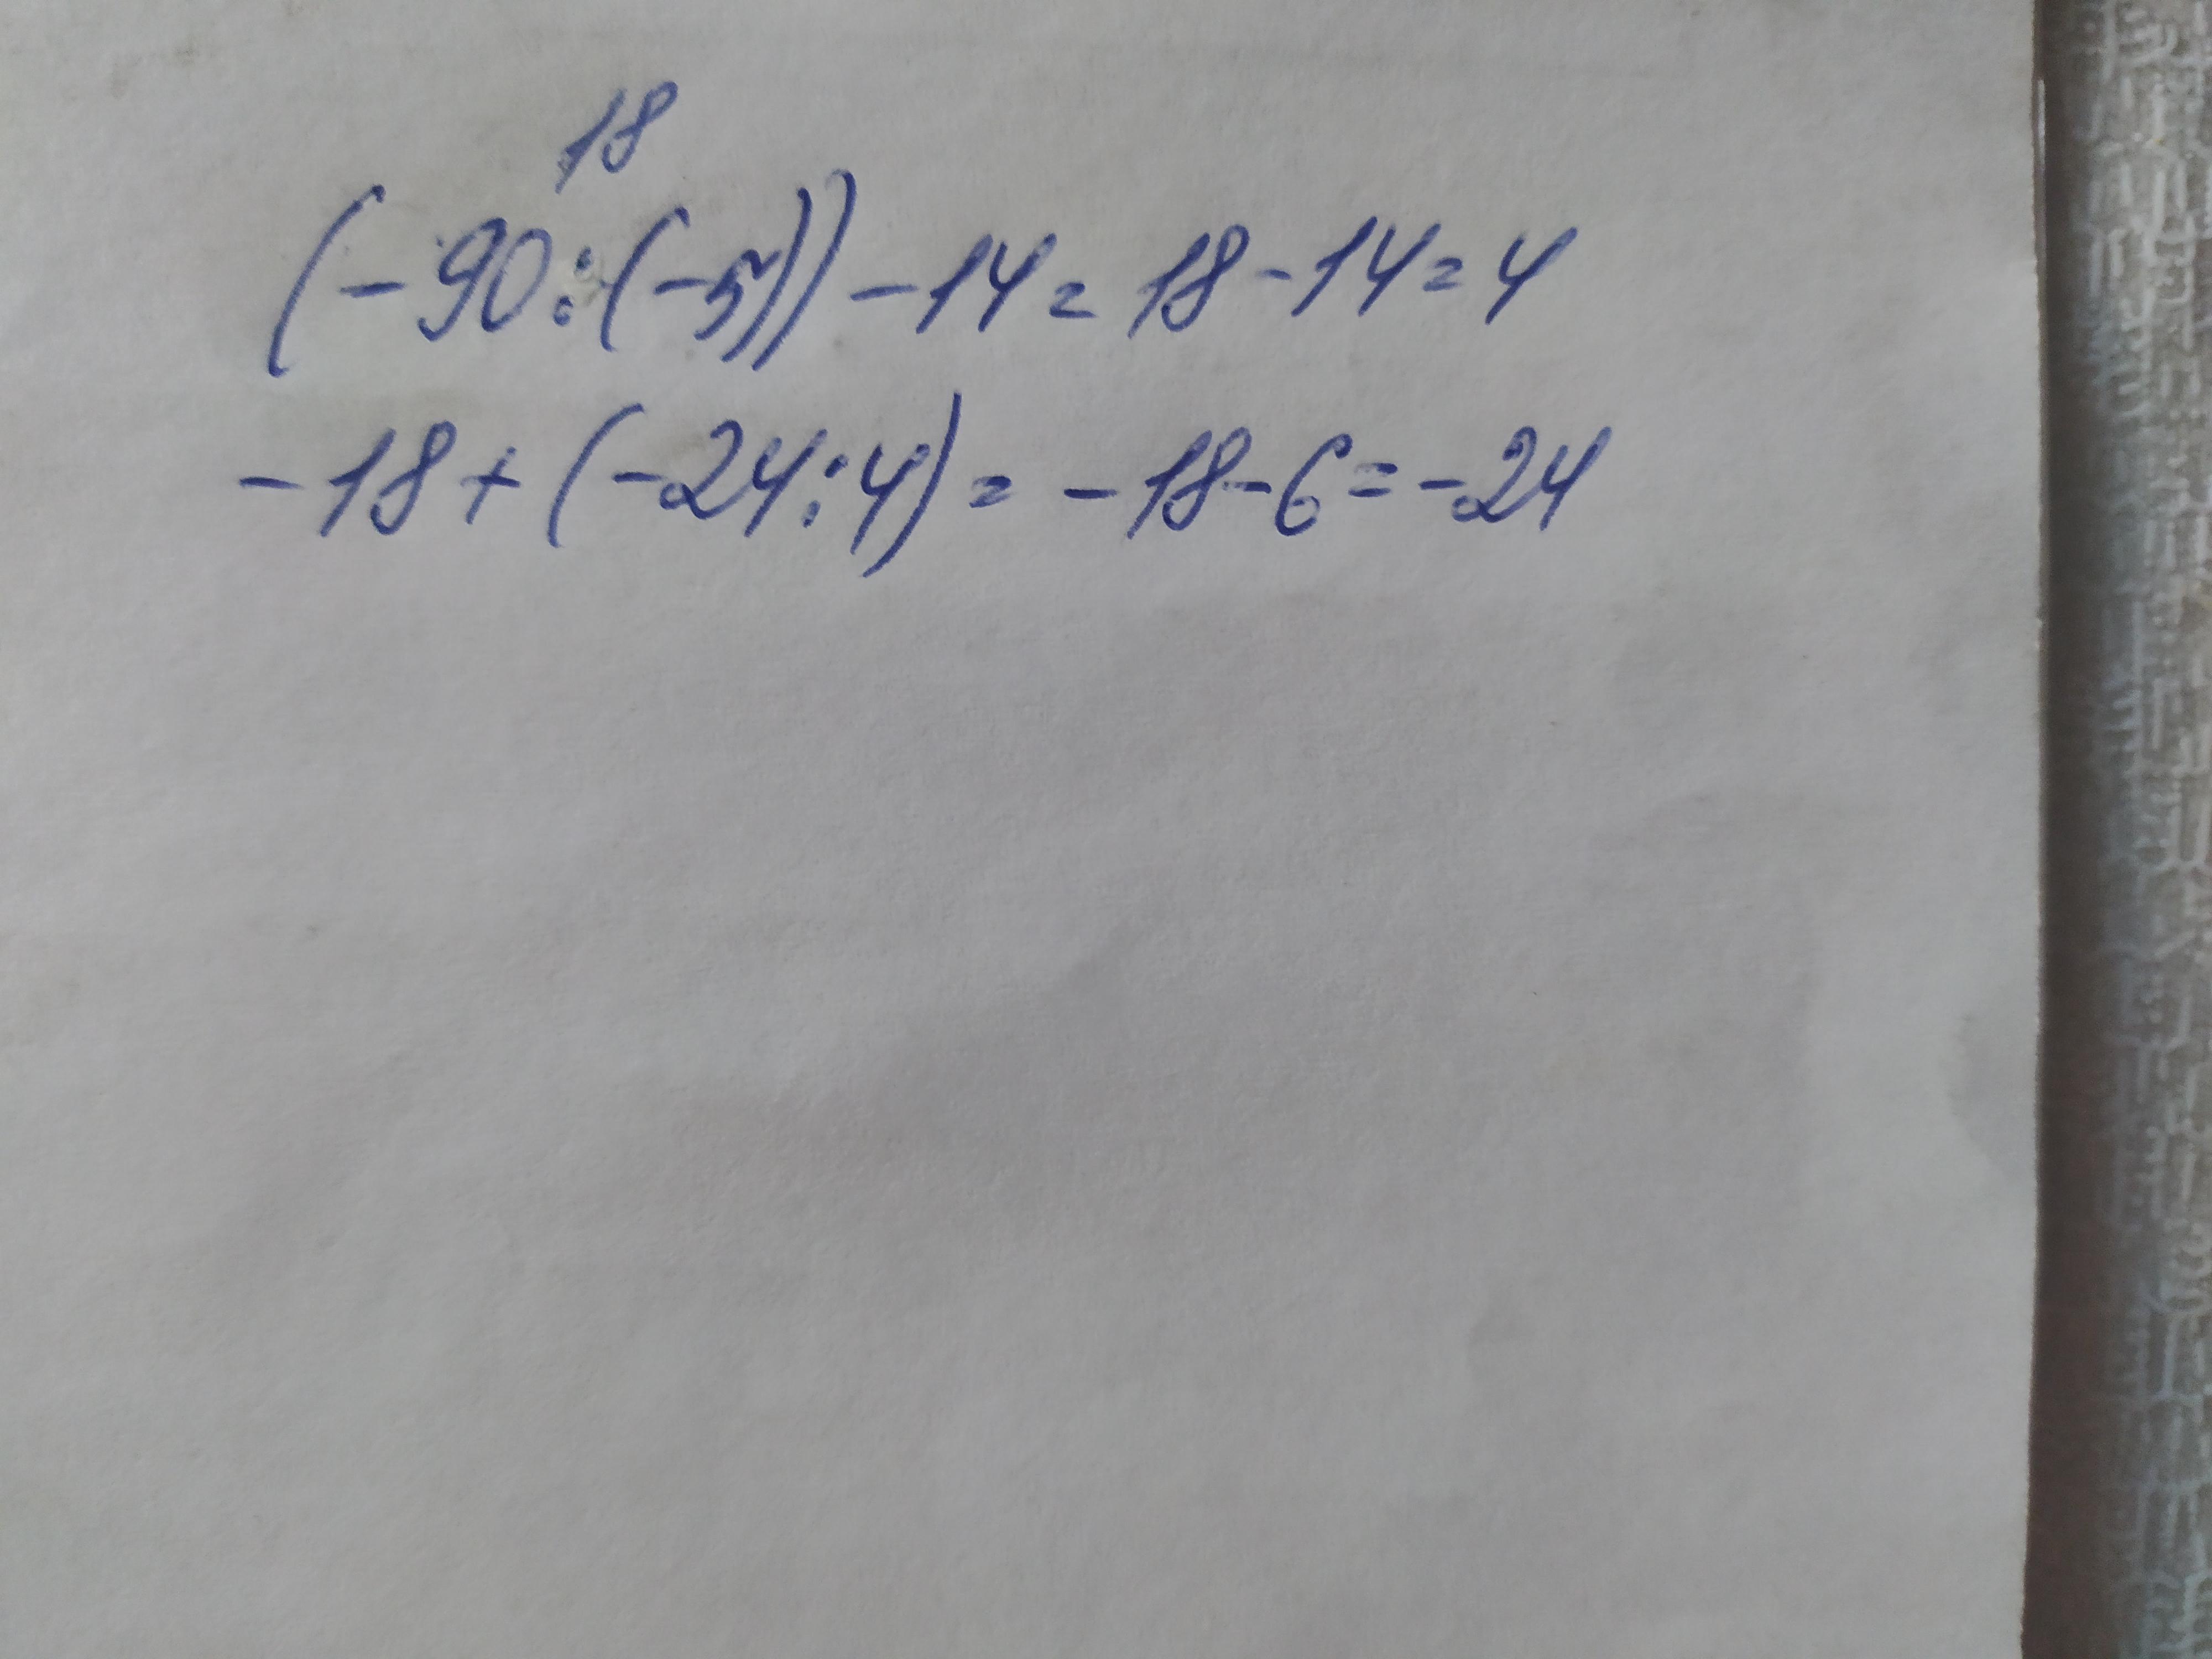 18
(-90:(-5))-14=18-14=4
-18+(-24:4)=-18-6=-24